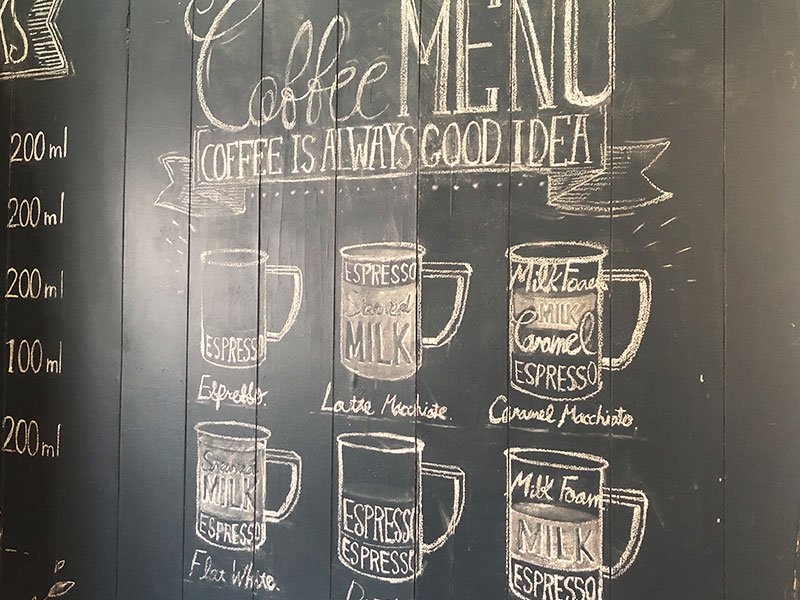 200 ml
200 ml
200 ml
100 ml
200 ml
Coffee MENU
COFFEE IS ALWAYS GOOD IDEA
ESPRESSO
Espresso.
ESPRESSO
Steamed
MILK
Latte Macchiato.
Milk Foam
MILK
Caramel
ESPRESSO
Caramel Macchiato.
Steamed
MILK
ESPRESSO
Flat White.
ESPRESSO
ESPRESSO
Milk Foam
MILK
ESPRESSO